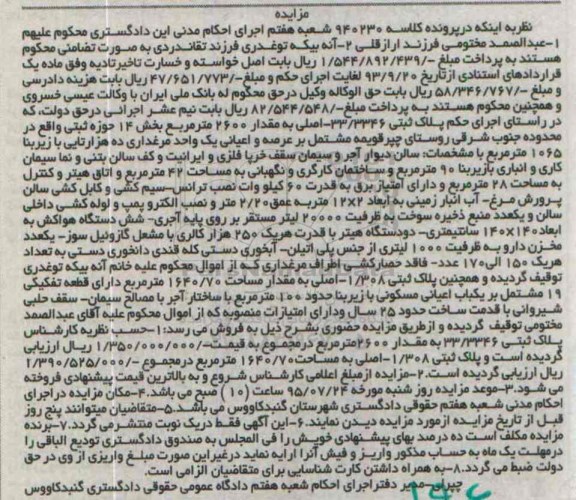 مزایده
نظر به اینکه در پرونده کلاسه ۹۴۰۲۳۰ شعبه هفتم اجرای احکام مدنی این دادگستری محکوم علیهم
۱-عبدالصمد مختومی فرزند اراز قلی ۲-آنه بیکه توغدری فرزند تقاندردی به صورت تضامنی محکوم
هستند به پرداخت مبلغ -/۱/۵۴۴/۸۹۲/۴۳۹ ریال بابت اصل خواسته و خسارت تاخیر تادیه وفق ماده یک
قراردادهای استنادی از تاریخ ۹۳/۹/۲۰ لغایت اجرای حکم و مبلغ-/۴۷/۶۵۱/۷۷۳ ریال بابت هزینه دادرسی
و مبلغ -/۵۸/۳۴۶/۷۶۷ ریال بابت حق الوکاله وکیل در حق محکوم له بانک ملی ایران با وکالت عیسی خسروی
و همچنین محکوم هستند به پرداخت مبلغ-/۸۲/۵۴۴/۵۴۸ ریال بابت نیم عشر اجرائی در حق دولت، که
در راستای اجرای حکم پلاک ثبتی ۳۳/۳۳۴۶-اصلی به مقدار ۲۶۰۰ مترمربع بخش ۱۴ حوزه ثبتی واقع در
محدوده جنوب شرقی روستای چپرقویمه مشتمل بر عرصه و اعیانی یک واحد مرغداری ده هزارتایی با زیربنا
۱۰۶۵ مترمربع با مشخصات: سالن دیوار آجر و سیمان سقف خرپا فلزی و ایرانیت و کف سالن بتنی و نما سیمان
کاری و انباری با زیربنا ۹۰ مترمربع و ساختمان کارگری و نگهبانی به مساحت ۴۲ مترمربع و اتاق هیتر و کنترل
به مساحت ۲۸ مترمربع و دارای امتیاز برق به قدرت ۶۰ کیلو وات نصب ترانس-سیم کشی و کابل کشی سالن
پرورش مرغ- آب انبار زمینی به ابعاد ۲×۱۲ متر به عمق ۲/۲۰ متر و نصب الکترو پمپ و لوله کشی داخلی
سالن و یکعدد منبع ذخیره سوخت به ظرفیت ۲۰۰۰۰ لیتر مستقر بر روی پایه آجری- شش دستگاه هواکش به
ابعاد ۱۴۰×۱۴۰ سانتیمتری- دودستگاه هیتر با قدرت هریک ۲۵۰ هزار کالری با مشعل گازوئیل سوز- یکعدد
مخزن دارو به ظرفیت ۱۰۰۰ لیتری از جنس پلی اتیلن- آبخوری دستی کله قندی دانخوری دستی به تعداد
هریک ۱۵۰ الی ۱۷۰ عدد- فاقد حصارکشی اطراف مرغداری که از اموال محکوم علیه خانم آنه بیکه توغدری
توقیف گردیده و همچنین پلاک ثبتی ۱/۳۰۸-اصلی به مقدار مساحت ۱۶۴۰/۷۰ مترمربع دارای قطعه تفکیکی
۱۹ مشتمل بر یکباب اعیانی مسکونی با زیربنا حدود ۱۰۰ مترمربع با ساختار آجر با مصالح سیمان- سقف حلبی
شیروانی با قدمت ساخت حدود ۲۵ سال و دارای امتیازات منصوبه که از اموال محکوم علیه آقای عبدالصمد
مختومی توقیف گردیده و از طریق مزایده حضوری بشرح ذیل به فروش می رسد: ۱-حسب نظریه کارشناس
پلاک ثبتی ۳۳/۳۳۴۶ به مقدار ۲۶۰۰ مترمربع در مجموع به قیمت -/۱/۳۵۰/۰۰۰/۰۰۰ ریال ارزیابی
گردیده است و پلاک ثبتی ۱/۳۰۸-اصلی به مساحت ۱۶۴۰/۷۰ مترمربع در مجموع -/۱/۳۹۰/۵۲۵/۰۰۰
ریال ارزیابی گردیده است. ۲-مزایده از مبلغ اعلامی کارشناس شروع و به بالاترین قیمت پیشنهادی فروخته
می شود. ۳-موعد مزایده روز شنبه مورخه ۹۵/۰۷/۲۴ ساعت (۱۰) صبح می باشد. ۴-مکان مزایده در اجرای
احکام مدنی شعبه هفتم حقوقی دادگستری شهرستان گنبدکاووس می باشد. ۵-متقاضیان میتوانند پنج روز
قبل از تاریخ مزایده از مورد مزایده دیدن نمایند. ۶-این آگهی فقط در یک نوبت منتشر می گردد. ۷-برنده
مزایده مکلف است ده درصد بهای پیشنهادی خویش را فی المجلس به صندوق دادگستری تودیع الباقی را
در مهلت یک ماه به حساب مذکور واریز و فیش آنرا ارایه نماید در غیر این صورت مبلغ واریزی از وی در حق
دولت ضبط می گردد. ۸-به همراه داشتن کارت شناسایی برای متقاضیان الزامی است.
مدیر دفتر اجرای احکام شعبه هفتم دادگاه عمومی حقوقی دادگستری گنبدکاووس